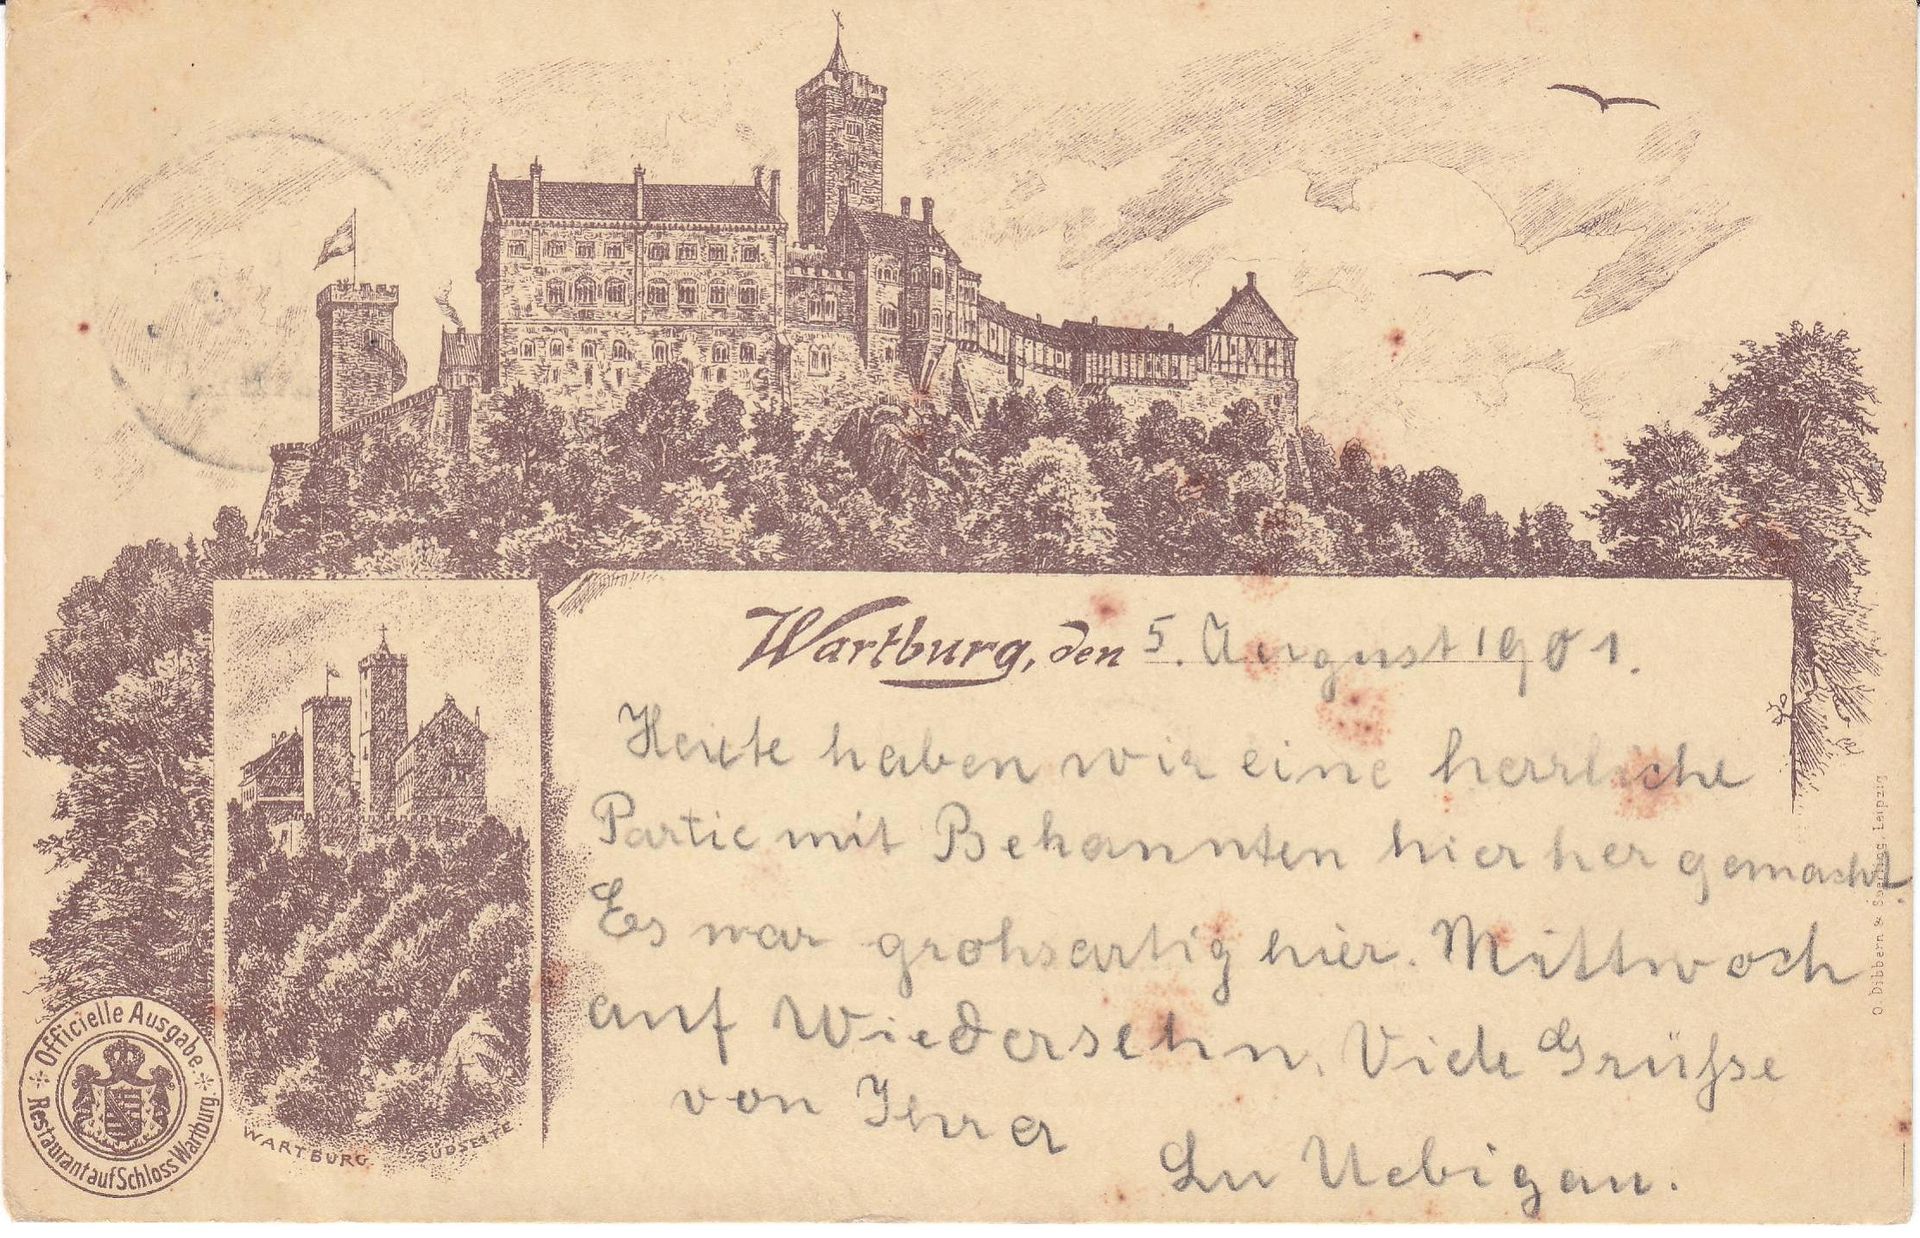 Wartburg, den 5. August 1901.
Heute haben wir eine herrliche
Partie mit Bekannten hierher gemacht.
Es war grohsartig hier. Mittwoch
auf Wiedersehn. Viele Grüsse
von Ihrer
Lu Uebigau.
WARTBURG SÜDSEITE.
Officielle Ausgabe
Restaurant auf Schloss Wartburg.
O. Dibbern & Leipzig